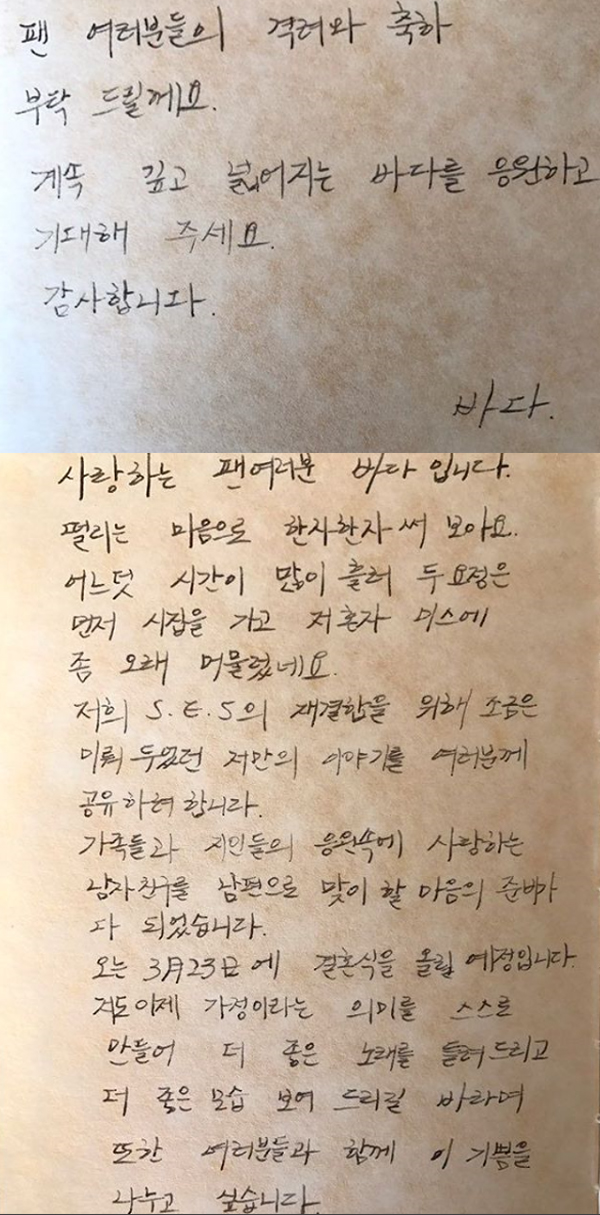 팬 여러분들의 격려와 축하
부탁 드릴께요.
계속 깊고 넓어지는 바다를 응원하고
기대해 주세요.
감사합니다.
바다.
사랑하는 팬여러분 바다 입니다.
떨리는 마음으로 한자한자 써 보아요.
어느덧 시간이 많이 흘러 두 요정은
먼저 시집을 가고 저 혼자 미스에
좀 오래 머물렀네요.
저희 S.E.S의 재결합을 위해 조금은
미뤄 두었던 저만의 이야기를 여러분께
공유하려 합니다.
가족들과 지인들의 응원속에 사랑하는
남자친구를 남편으로 맞이 할 마음의 준비가
다 되었습니다.
오는 3月23日에 결혼식을 올릴 예정입니다.
저도 이제 가정이라는 의미를 스스로
만들어 더 좋은 노래를 들려드리고
더 좋은 모습 보여 드리길 바라며
또한 여러분들과 함께 이 기쁨을
나누고 싶습니다.